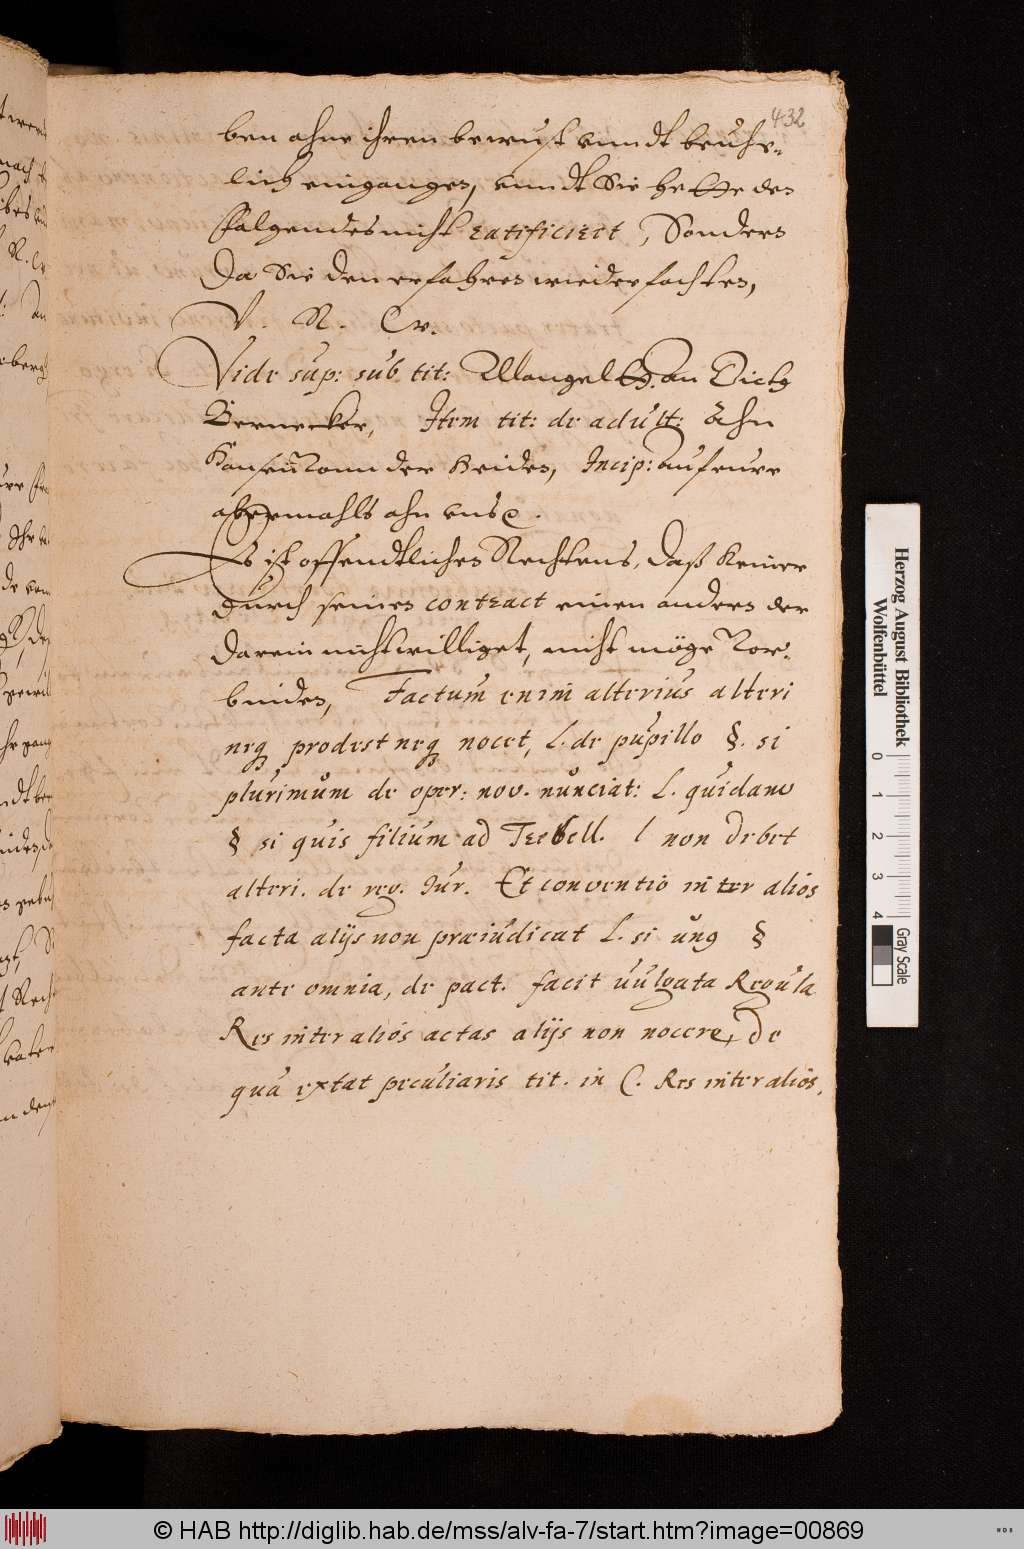 432
ben ahne ihren bewust vnndt beuhe-
lich eingangen, vnndt Sie hette des
Folgendes nicht ratificiert, Sondern
Da Sie den erfahren wiederfochten,
V. R. Cv.
Vide sup: sub tit: Mangel H. an Dietz
Bernecker, Item tit: de adult: Ahn
Hansen von der Heiden, Incip: Auf eure
abermahls ahn vns
Es ist offendtlichen Rechtens, Daß Keiner
Durch seinen contract einen andern der
darein nicht williget, nicht möge Vor-
binden, Factum enim alterius alteri
neq prodest neq nocet, L. de pupillo §. si
plurimum de oper: nov. nunciat: L. quidam
§ si quis filium ad Trebell. l non debet
alteri. de reg. Jur. Et conventio inter alios
facta alijs non præiudicat L. si unq §
ante omnia, de pact. facit uulgata Regula
Res inter alios actas alijs non nocere, De
qua extat peculiaris tit. in C. Res inter alios.
Herzog August Bibliothek
Wolfenbüttel
0 1 2 3 4
Gray Scale
© HAB http://diglib.hab.de/mss/alv-fa-7/start.htm?image=00869